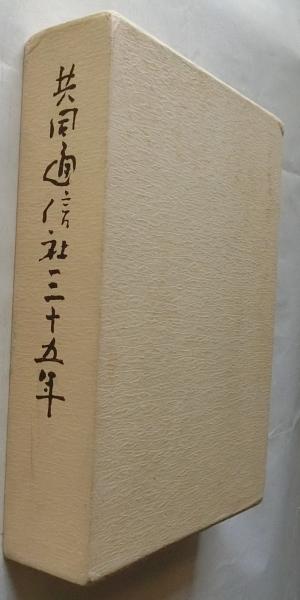 共同通信社三十五年